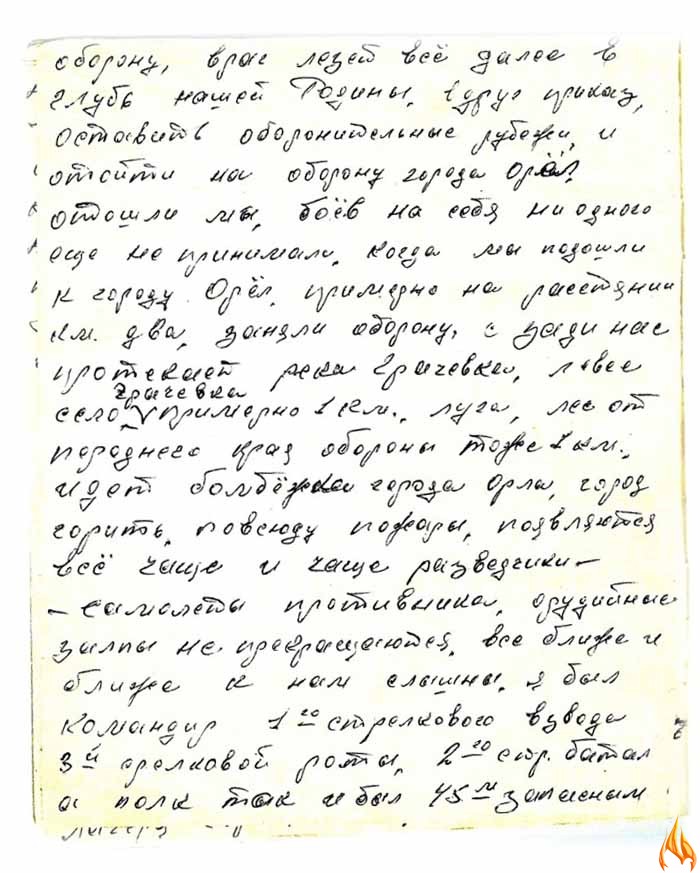 оборону, враг лезет всё далее в
глубь нашей Родины, вдруг приказ,
оставить оборонительные рубежи, и
отойти на оборону города Орёл,
отошли мы, боёв на себя ни одного
еще не принимали, когда мы подошли
к городу Орёл, примерно на расстянии
км. два, заняли оборону, с зади нас
протекает река Грачевка, левее
село Грачевка примерно 1 км., луга, лес от
переднего края обороны тоже 1 км.,
идет бомбёжка города Орла, город
горить, повсюду пожары, появляются
всё чаще и чаще разведчики –
– самолеты противника, орудийные
залпы не прекращаются, все ближе и
ближе к нам слышны, я был
командир 1го стрелкового взвода
3й срелковой роты, 2го стр. батал
а полк так и был 45м запасным